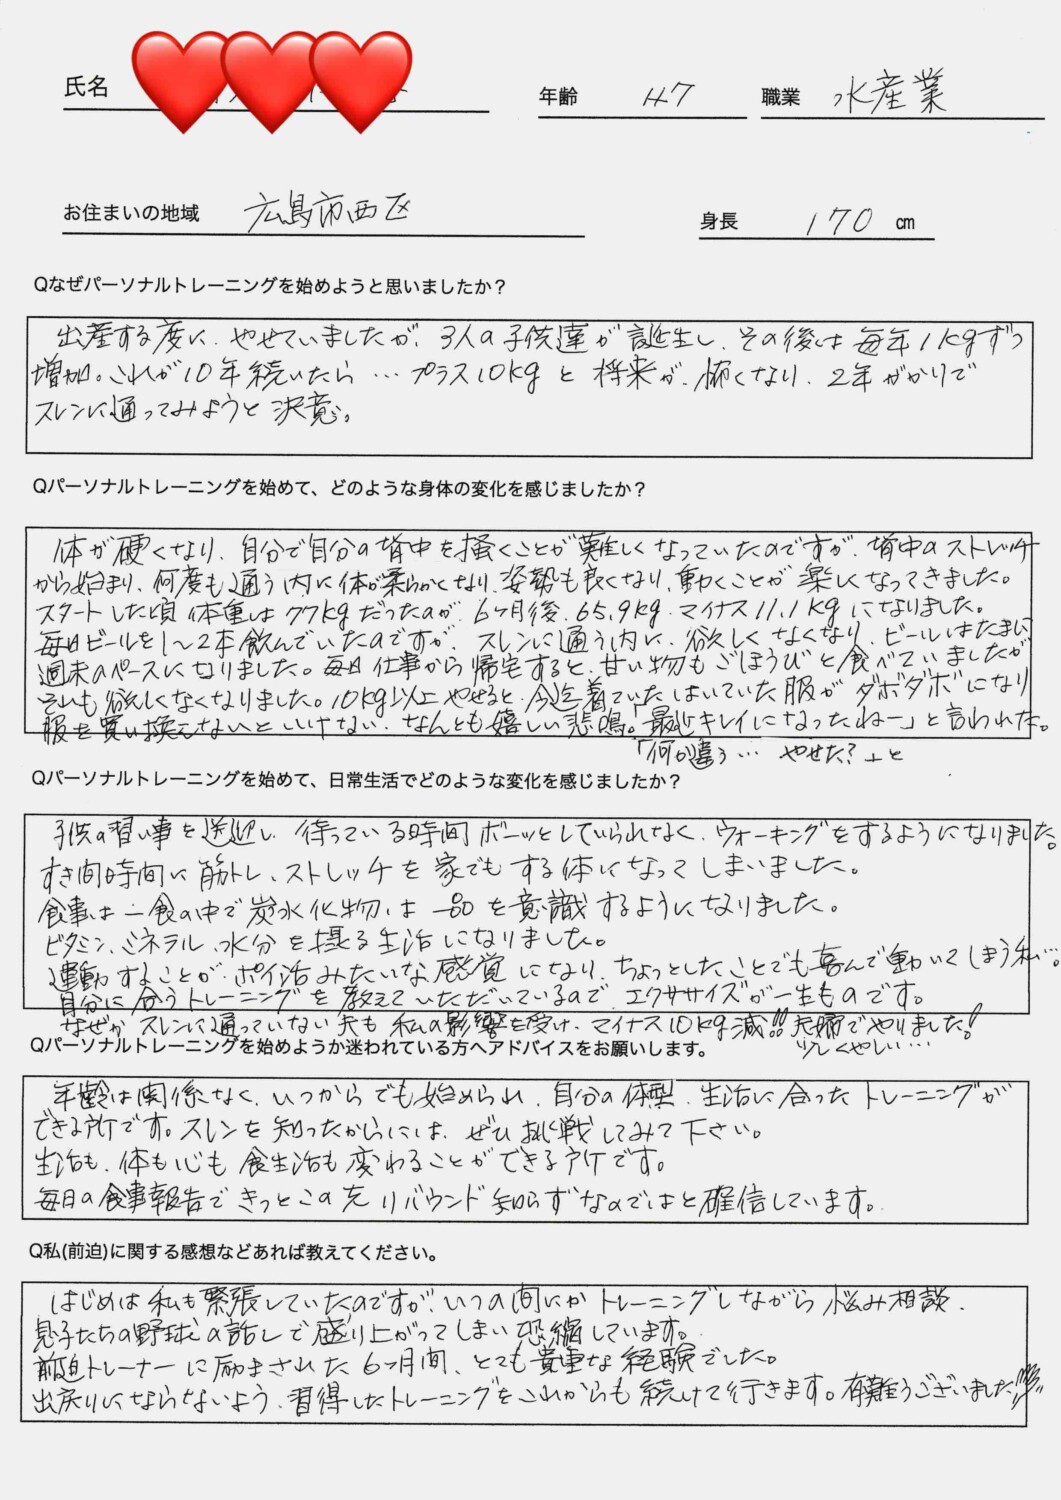 氏名
年齢 47 職業 水産業
お住まいの地域 広島市西区
身長 170 cm
Qなぜパーソナルトレーニングを始めようと思いましたか？
出産する度に、やせていましたが、3人の子供達が誕生し、その後は毎年1kgずつ
増加。これが10年続いたら…プラス10kgと将来が、怖くなり、2年がかりで
スレンに通ってみようと決意。
Qパーソナルトレーニングを始めて、どのような身体の変化を感じましたか？
体が硬くなり、自分で自分の背中を掻くことが難しくなっていたのですが、背中のストレッチ
から始まり、何度も通う内に体が柔らかくなり、姿勢も良くなり、動くことが楽しくなってきました。
スタートした頃体重は77kgだったのが、6ヶ月後、65,9kg、マイナス11,1kgになりました。
毎日ビールを1〜2本飲んでいたのですが、スレンに通う内に、欲しくなくなり、ビールはたまに
週末のペースになりました。毎日仕事から帰宅すると、甘い物もごほうびと食べていましたが
それも欲しくなくなりました。10kg以上やせると、今迄着ていた、はいていた服がダボダボになり
服を買い換えないといけない、なんとも嬉しい悲鳴。「最近キレイになったねー」と言われた。
「何か違う… やせた？」と
Qパーソナルトレーニングを始めて、日常生活でどのような変化を感じましたか？
子供の習い事を送迎し、待っている時間ボーッとしていられなく、ウォーキングをするようになりました。
すき間時間に筋トレ、ストレッチを家でもする体になってしまいました。
食事は一食の中で炭水化物は一品を意識するようになりました。
ビタミン、ミネラル、水分を摂る生活になりました。
運動することが、ポイ活みたいな感覚になり、ちょっとしたことでも喜んで動いてしまう私…。
自分に合うトレーニングを教えていただいているので、エクササイズが一生ものです。
なぜか、スレンに通っていない夫も、私の影響を受け、マイナス10kg減!!夫婦でやりました!
少しくやしい…
Qパーソナルトレーニングを始めようか迷われている方へアドバイスをお願いします。
年齢は関係なく、いつからでも始められ、自分の体型、生活に合ったトレーニングが
できる所です。スレンを知ったからには、ぜひ挑戦してみて下さい。
生活も、体も心も食生活も変わることができる所です。
毎日の食事報告できっとこの先リバウンド知らずなのではと確信しています。
Q私(前迫)に関する感想などあれば教えてください。
はじめは私も緊張していたのですが、いつの間にかトレーニングしながら悩み相談、
息子たちの野球の話しで盛り上がってしまい恐縮しています。
前迫トレーナーに励まされた6ヶ月間、とても貴重な経験でした。
出戻りにならないよう、習得したトレーニングをこれからも続けて行きます。有難うございました!!!